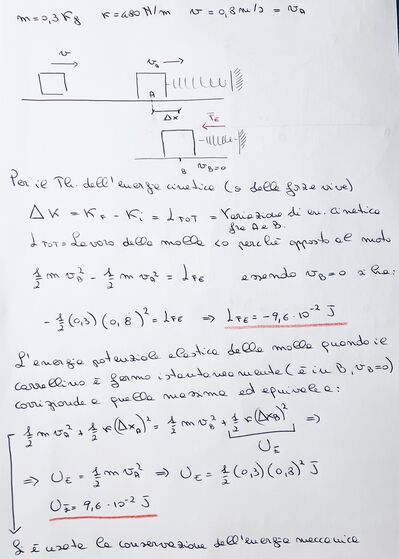 m = 0,3 Kg   K = 480 N/m   v = 0,8 m/s = v_A
v   v_A
A
Δx   F_E
B   v_B=0
Per il Th. dell'energia cinetica (o delle forze vive)
ΔK = K_F - K_i = L_TOT = Variazione di en. cinetica
fra A e B.
L_TOT = Lavoro della molla <0 perchè opposto al moto
1/2 m v_B² - 1/2 m v_A² = L_FE   essendo v_B=0 si ha:
- 1/2 (0,3) (0,8)² = L_FE ⇒ L_FE = -9,6 · 10⁻² J
L'energia potenziale elastica della molla quando il
carrellino è fermo istantaneamente (è in B, v_B=0)
corrisponde a quella massima ed equivale a:
1/2 m v_A² + 1/2 K (Δx_A)² = 1/2 m v_B² + 1/2 K (Δx_B)² ⇒
U_E
⇒ U_E = 1/2 m v_A² ⇒ U_E = 1/2 (0,3) (0,8)² J
U_E = 9,6 · 10⁻² J
Si è usata la conservazione dell'energia meccanica